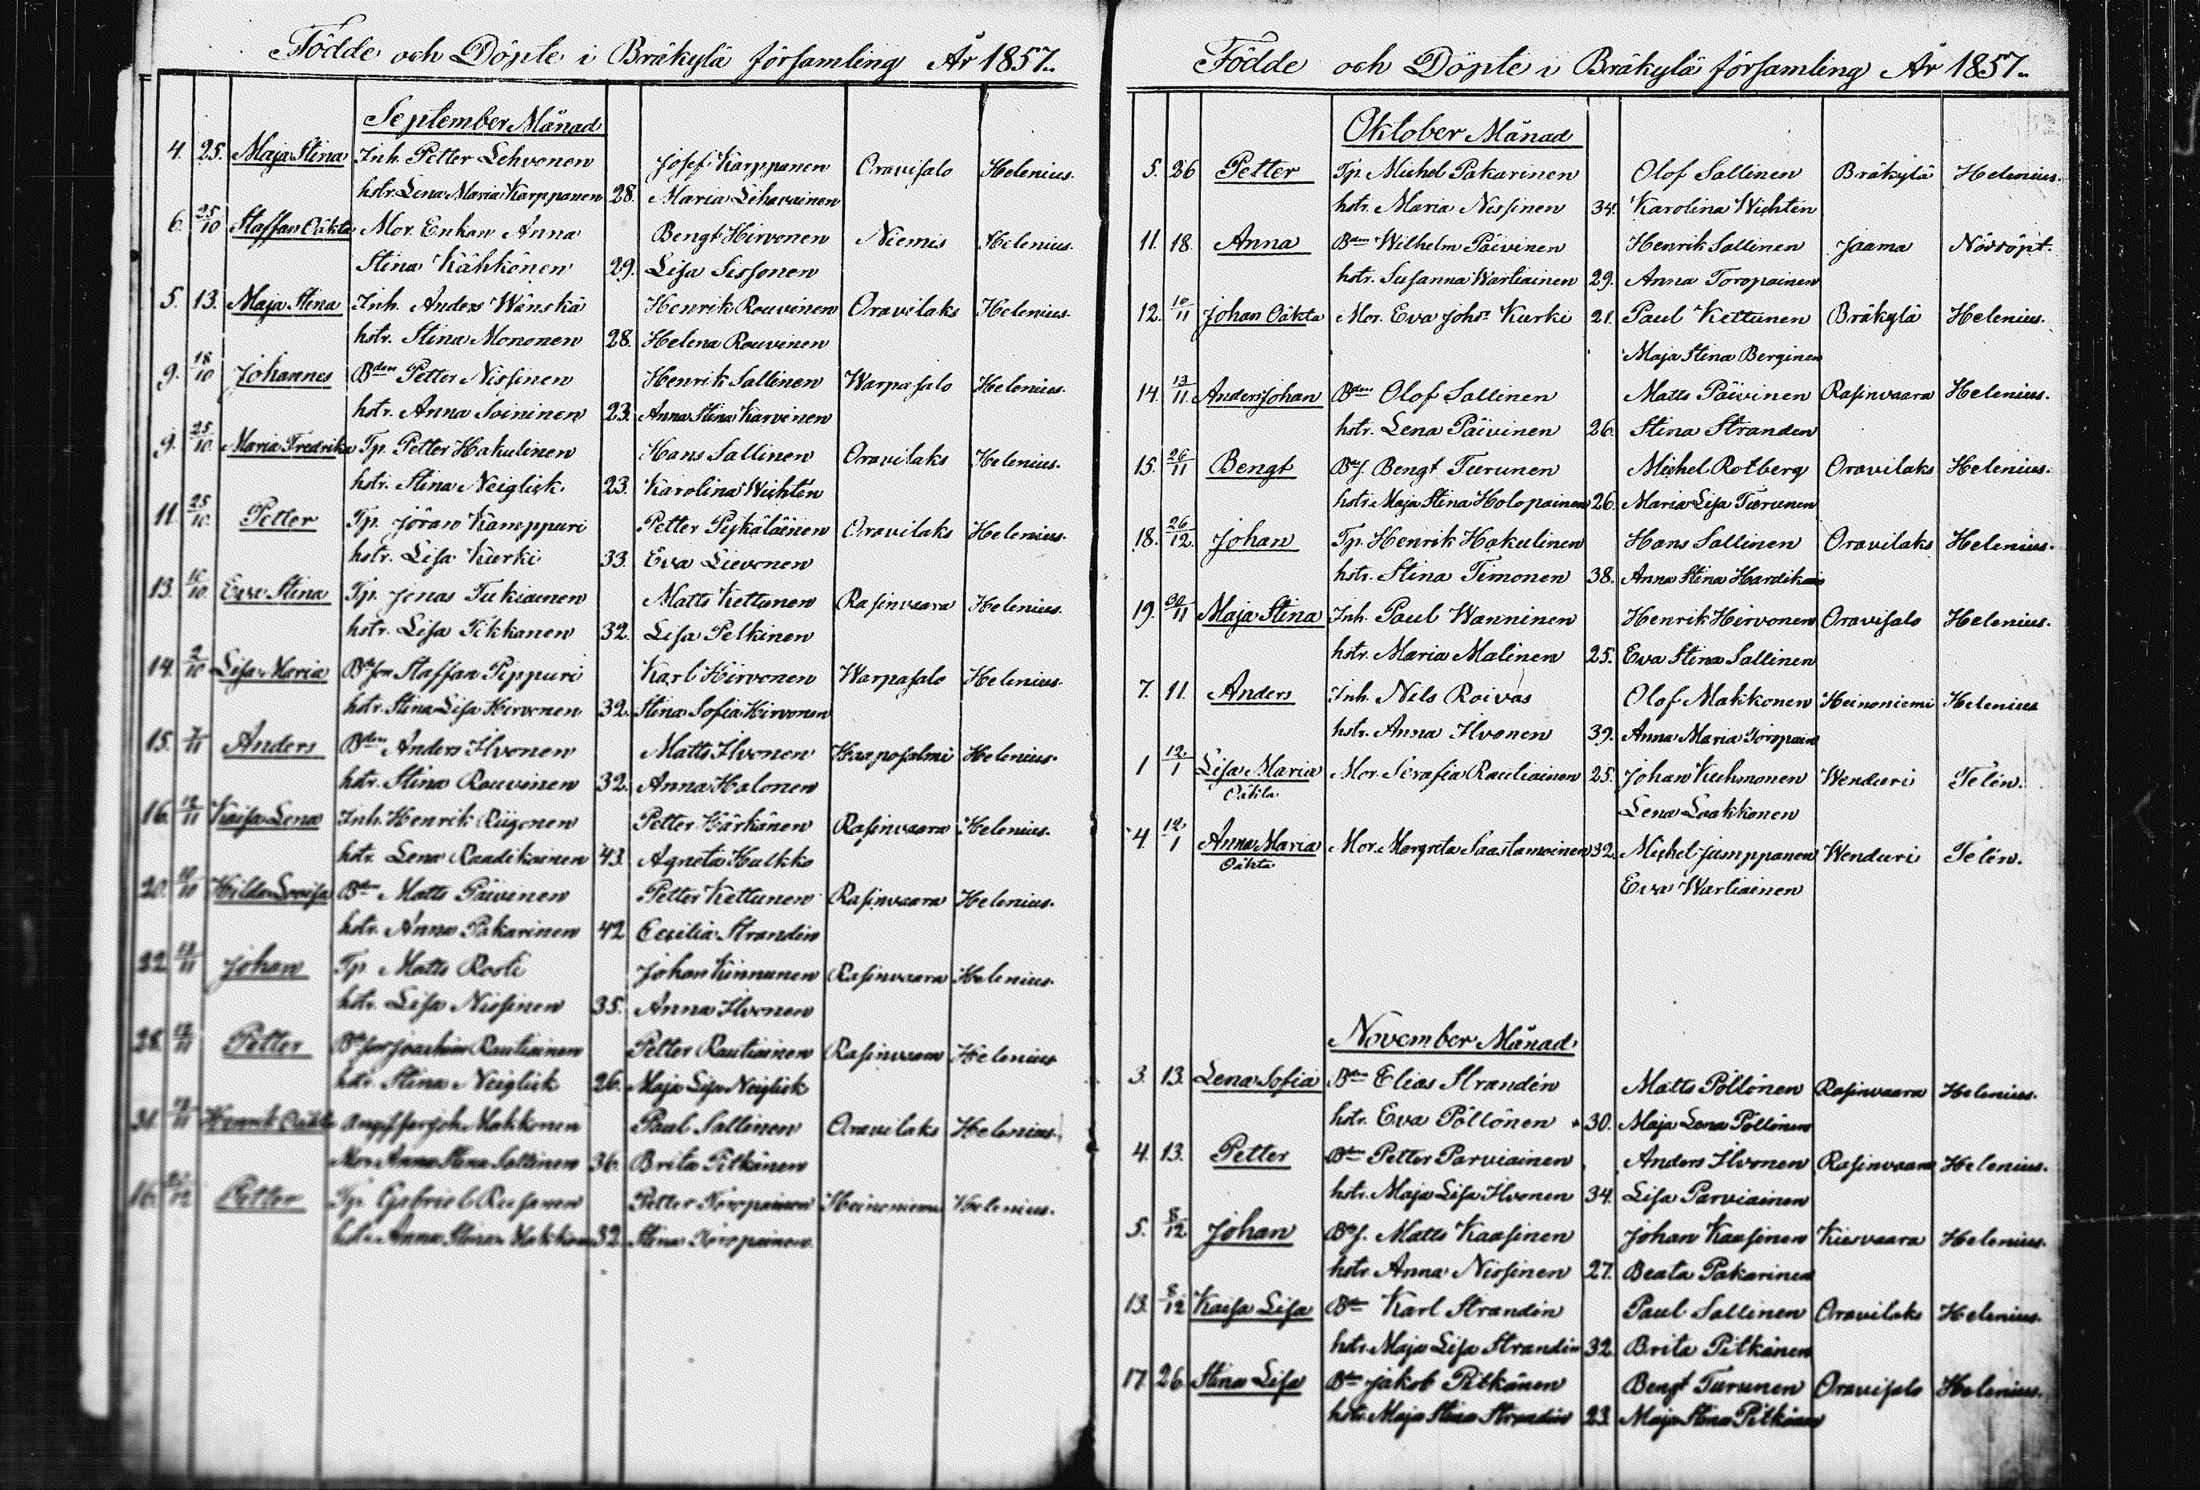 Födde och Döpte i Bräkylä församling År 1857.
September Månad
4. 25. Maja Stina Inh. Petter Lehvonen Josef Karppanen Oravisalo Helenius.
hstr. Lena Maria Karppanen 28. Maria Lehavainen
6. 25/10 Staffan Oäkta Mor. Enkan Anna Bengt Hirvonen Niemis Helenius.
Stina Kähkönen 29. Lisa Sissonen
5. 13. Maja Stina Inh. Anders Wänskä Henrik Rouvinen Oravilaks Helenius.
hstr. Stina Mononen 28. Helena Rouvinen
9. 18/10 Johannes Bden Petter Nissinen Henrik Sallinen Warpasalo Helenius.
hstr. Anna Soininen 23. Anna Stina Karvinen
9. 25/10 Maria Fredrika Tp. Petter Hakulinen Hans Sallinen Oravilaks Helenius.
hstr. Stina Neiglick 23. Karolina Wichtén
11. 25/10 Petter Tp. Jöran Kämppuri Petter Pykäläinen Oravilaks Helenius.
hstr. Lisa Kurki 33. Eva Lievonen
13. /10 Eva Stina Tp. Jonas Tukiainen Matts Kettunen Rasinvaara Helenius.
hstr. Lisa Tikkanen 32. Lisa Pelkinen
14. 2/10 Lisa Maria Staffan Pippuri Karl Hirvonen Warpasalo Helenius.
hstr. Stina Lisa Hirvonen 32. Stina Sofia Hirvonen
15. /11 Anders Bden Anders Ilvonen Matts Ilvonen Haaposalmi Helenius.
hstr. Stina Rouvinen 32. Anna Halonen
16. 12/11 Kaisa Lena Inh. Henrik Riigonen Petter Härkönen Rasinvaara Helenius.
hstr. Lena Raadikainen 43. Agneta Hulkko
20. /10 Hilda Lovisa Bden Matts Päivinen Petter Kettunen Rasinvaara Helenius.
hstr. Anna Pakarinen 42 Cecilia Strandén
22 /11 Johan Tp. Matts Johan Kinnunen Rasinvaara Helenius.
hstr. Lisa Nissinen 35. Anna Ilvonen
28. 12/11 Petter Joachim Rautiainen Petter Rautiainen Rasinvaara Helenius
hstr. Stina Neiglick 26. Maja Lisa Neiglick
/11 Henrik Oäkta Joh. Makkonen Paul Sallinen Oravilaks Helenius.
Mor Anna Stina Sallinen 36. Brita Pitkänen
16. /12 Petter Tp. Gabriel Petter Toropainen Heinoniemi Helenius.
hstr. Anna Stina 32. Stina Toropainen.
Födde och Döpte i Bräkylä församling År 1857.
Oktober Månad
5. 26 Petter Tp. Michel Pakarinen Olof Sallinen Bräkylä Helenius.
hstr. Maria Nissinen 34. Karolina Wichtén
11. 18. Anna Bden Wilhelm Päivinen Henrik Sallinen Jaama Nödröpt.
hstr. Susanna Wartiainen 29. Anna Toropainen
12. 10/11 Johan Oäkta Mor. Eva Johsr Kurki 21. Paul Kettunen Bräkylä Helenius.
Maja Stina Berginen
14. 13/11 Anders Johan Bden Olof Sallinen Matts Päivinen Rasinvaara Helenius.
hstr. Lena Päivinen 26. Stina Stranden
15. 26/11 Bengt Bdf. Bengt Turunen Michel Rotberg Oravilaks Helenius.
hstr. Maja Stina Holopainen 26. Maria Lisa Turunen
18. 26/12 Johan Tp. Henrik Hakulinen Hans Sallinen Oravilaks Helenius.
hstr. Stina Timonen 38. Anna Stina
19. 30/11 Maja Stina Inh. Paul Wanninen Henrik Hirvonen Oravisalo Helenius.
hstr. Maria Malinen 25. Eva Stina Sallinen
7. 11. Anders Inh. Nils Roivas Olof Makkonen Heinoniemi Helenius
hstr. Anna Ilvonen 39. Anna Maria Toropain
1 12/1 Lisa Maria Mor. Serafia Rautiainen 25. Johan Kuhmonen Wenduri Telén.
Oäkta Lena Laakkonen
4. 12/1 Anna Maria Mor. Margreta Saastamoinen 32. Michel Jumppanen Wenduri Telén.
Oäkta Eva Wartiainen
November Månad
3. 13. Lena Sofia Bden Elias Strandén Matts Pöllönen Rasinvaara Helenius.
hstr. Eva Pöllönen 30. Maja Lena Pöllönen
4. 13. Petter Bden Petter Parviainen Anders Ilvonen Rasinvaara Helenius.
hstr. Maja Lisa Ilvonen 34. Lisa Parviainen
5. 8/12 Johan Bdf. Matts Kaasinen Johan Kaasinen Kiesvaara Helenius.
hstr. Anna Nissinen 27. Beata Pakarinen
13. 8/12 Kaisa Lisa Bden Karl Strandén Paul Sallinen Oravilaks Helenius.
hstr. Maja Lisa Strandén 32 Brita Pitkänen
17. 26 Stina Lisa Bden Jakob Pitkänen Bengt Turunen Oravisalo Helenius.
hstr. Maja Stina Strandén 23. Maja Stina Pitkänen